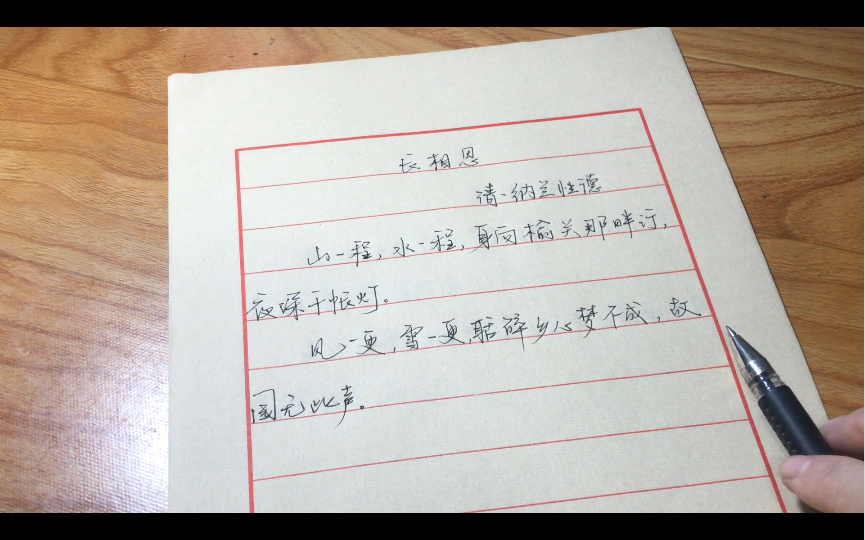 长相思
清·纳兰性德
山一程，水一程，身向榆关那畔行，
夜深千帐灯。
风一更，雪一更，聒碎乡心梦不成，故
园无此声。